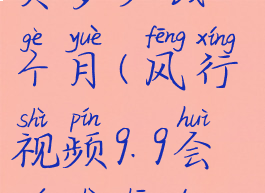 gè yuè fēng xíng
个月(风行
shì pín huì
视频9.9会